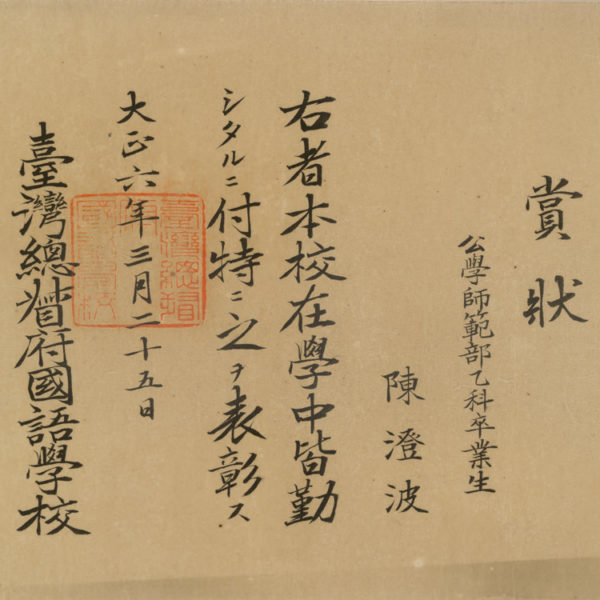 賞狀
公學師範部乙科卒業生
陳澄波
右者本校在學中皆勤
シタルニ付特ニ之ヲ表彰ス
大正六年三月二十五日
臺灣總督府國語學校